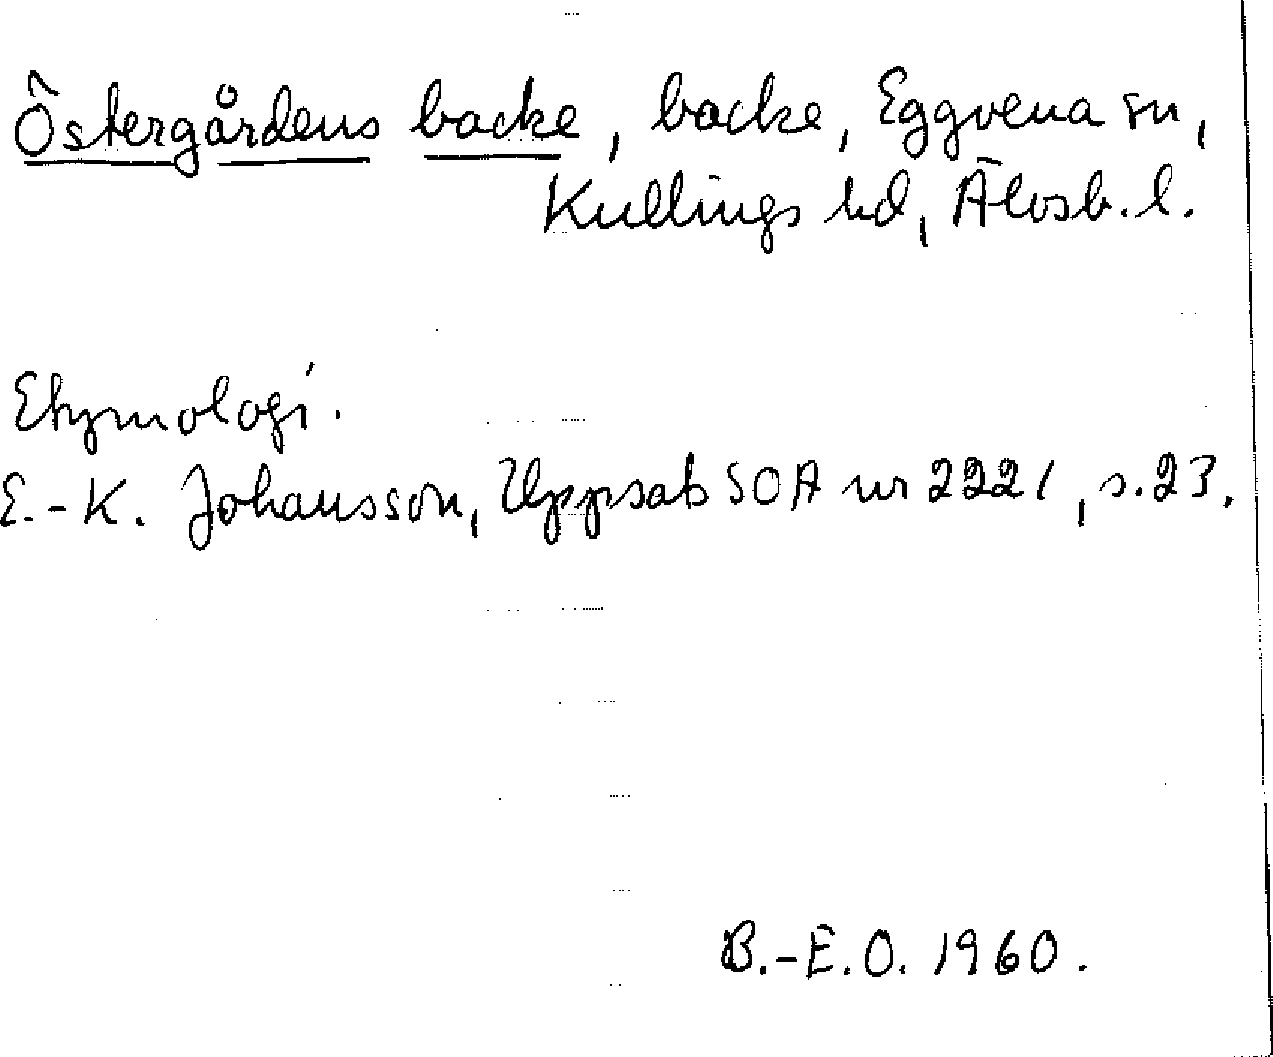 Östergårdens backe, backe, Eggvena sn,
Kullings hd, Älvsb. l.
Etymologi.
E.-K. Johansson, Uppsats SOA nr 2221, s. 23.
B.-E.O. 1960.